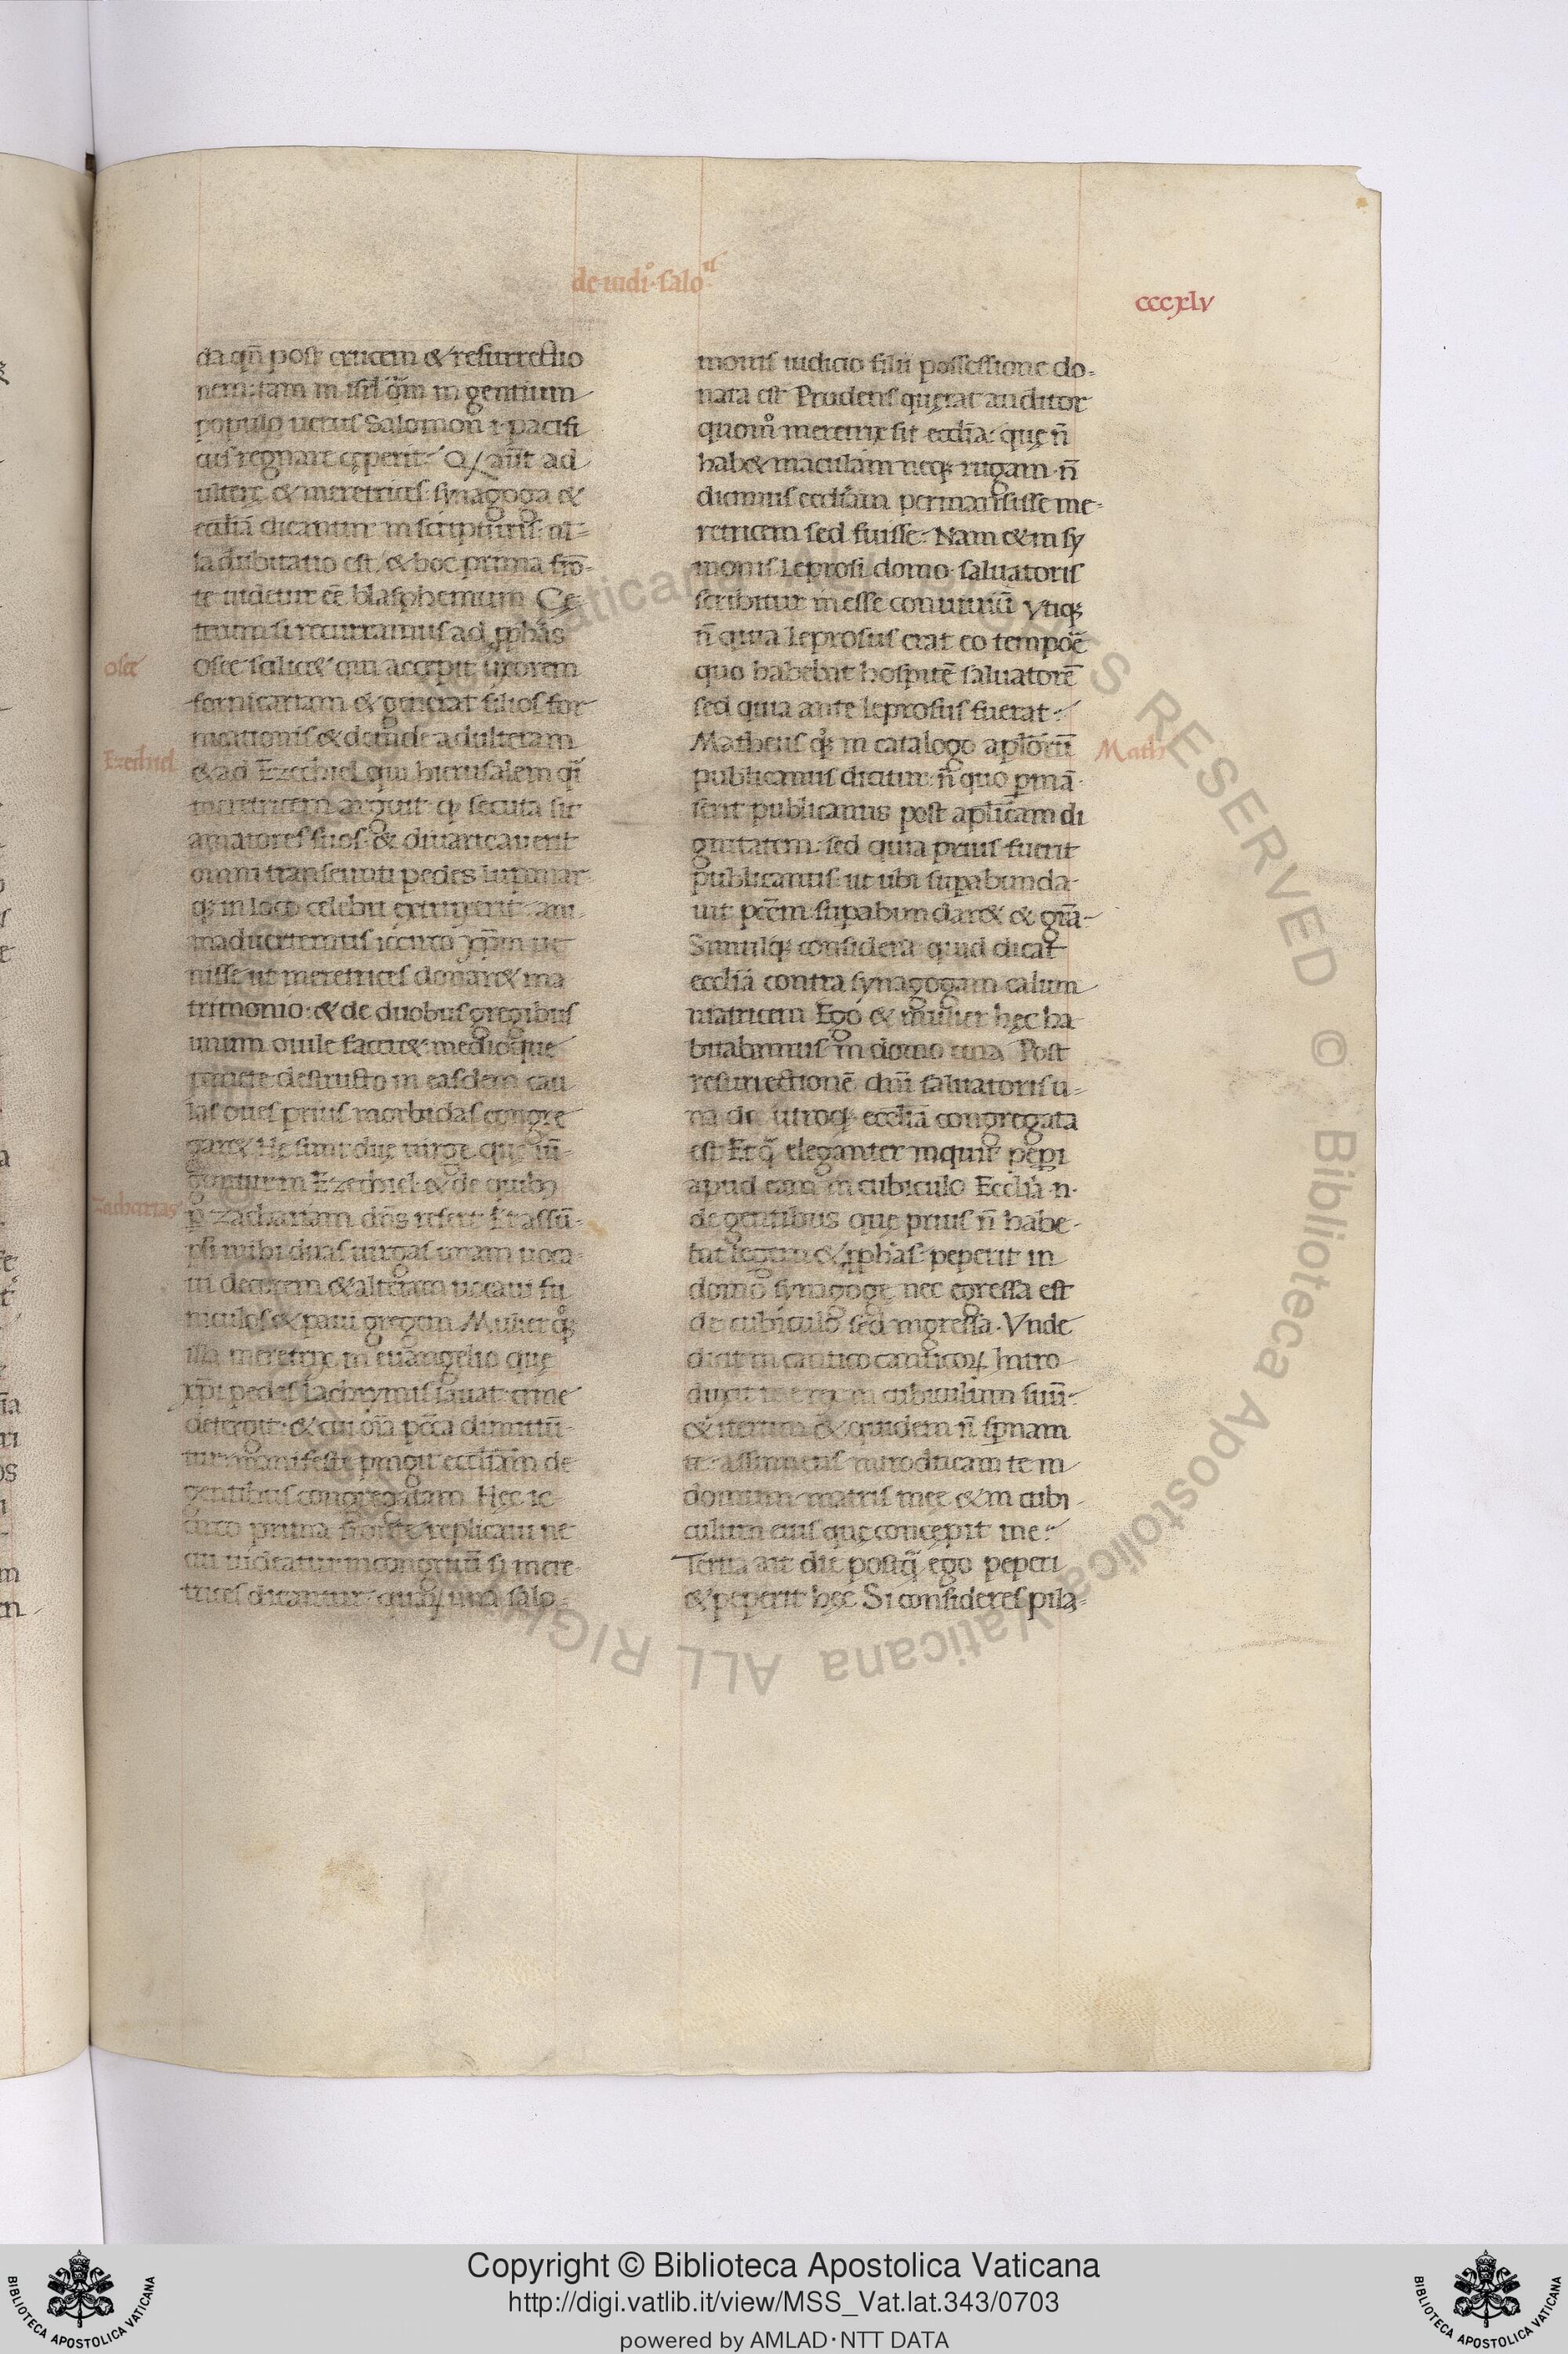 de iudi͛o · salo͛n
cccxlv
da qn̄ post crucem & resurrectio
nem: tam in isrl̄ q̄m in gentium
populo uerus Salomon ·i· pacifi
cus regnare cęperit· Qꝫ aūt ad
ulterę & meretrices: synagoga &
eccliā dicantur in scripturis: nl=
la dubitatio est. & hoc prima frō=
te uidetur eē blasphemum Ce
terum si recurramus ad ꝓphās
Osee scilicet qui accepit uxorem
fornicariam & generat filios for
nicationis & deinde adulteram
& ad Ezechiel qui hierusalem q̄i
meretricem arguit· q secuta sit
amatores suos· & diuaricauerit
omni transeunti pedes lupanar
qꝫ in loco celebri extruxerit: ani
maduertemus iccirco xp̄m ue
nisse ut meretrices donaret ma
trimonio: & de duobus gregibus
unum ouile faceret· medioque
pariete destructo in easdem cau
las oues prius morbidas congre
garet He sunt due uirge que iū=
guntur in Ezechiel & de quibꝫ
ꝑ zachariam dn̄s refert Et assū=
psi mihi duas uirgas unam uoca
ui decorem & alteram uocaui fu
niculos & paui gregem Mulier qꝫ
illa meretrix in euangelio quę
xp̄i pedes lachrymis lauat: crine
detergit: & cui oīa pcc̄a dimittū=
tur: manifeste pingit eccliām de
gentibus congregatam Hęc ic
circo prima fronte replicaui ne
cui uideatur incongruū si mere
trices dicantur· quaꝝ una salo=
osee
Ezechiel
Zacharias
monis iudicio filii possessione do=
nata est Prudens quęrat auditor
quom̊ meretrix sit ecclīa: quę n̄
habet maculam neqꝫ rugam· n̄
dicimus eccliām permansisse me=
retricem sed fuisse: Nam & in sy
monis Leprosi domo· saluatoris
scribitur inesse conuiuiū Vtiqꝫ
n̄ quia leprosus erat eo tempoē
quo habebat hospitē saluatorē
sed quia ante leprosus fuerat:
Matheus qꝫ in catalogo aplōrū
publicanus dicitur: n̄ quo ꝑmā
serit publicanus post aplicam di
gnitatem: sed quia prius fuerit
publicanus: ut ubi suꝑabunda
uit pcc̄m: suꝑabundaret & gr̄a=
Simulqꝫ considera quid dicat
eccliā contra synagogam calum
niatricem Ego & mulier hęc ha
bitabimus in domo una Post
resurrectionē dn̄i saluatoris u=
na de utroqꝫ ecclia congregata
est Et q̄ eleganter inquit peꝑi
apud eam in cubiculo Ecclīa ·n·
de gentibus que prius n̄ habe=
bat legem & ꝓphās· peperit in
domo synagogę nec egressa est
de cubiculo sed ingressa· Vnde
dicit in cantico canticoꝝ Intro
duxit me rex in cubiculum suū:
& iterum & quidem n̄ sꝑnam
te: assumens introducam te in
domum matris mee & in cubi=
culum eius quę concepit me:
Tertia ait die postq̄ ego peperi
& peperit hęc Si consideres pila=
Math
Copyright © Biblioteca Apostolica Vaticana
http://digi.vatlib.it/view/MSS_Vat.lat.343/0703
powered by AMLAD·NTT DATA
BIBLIOTECA APOSTOLICA VATICANA
BIBLIOTECA APOSTOLICA VATICANA